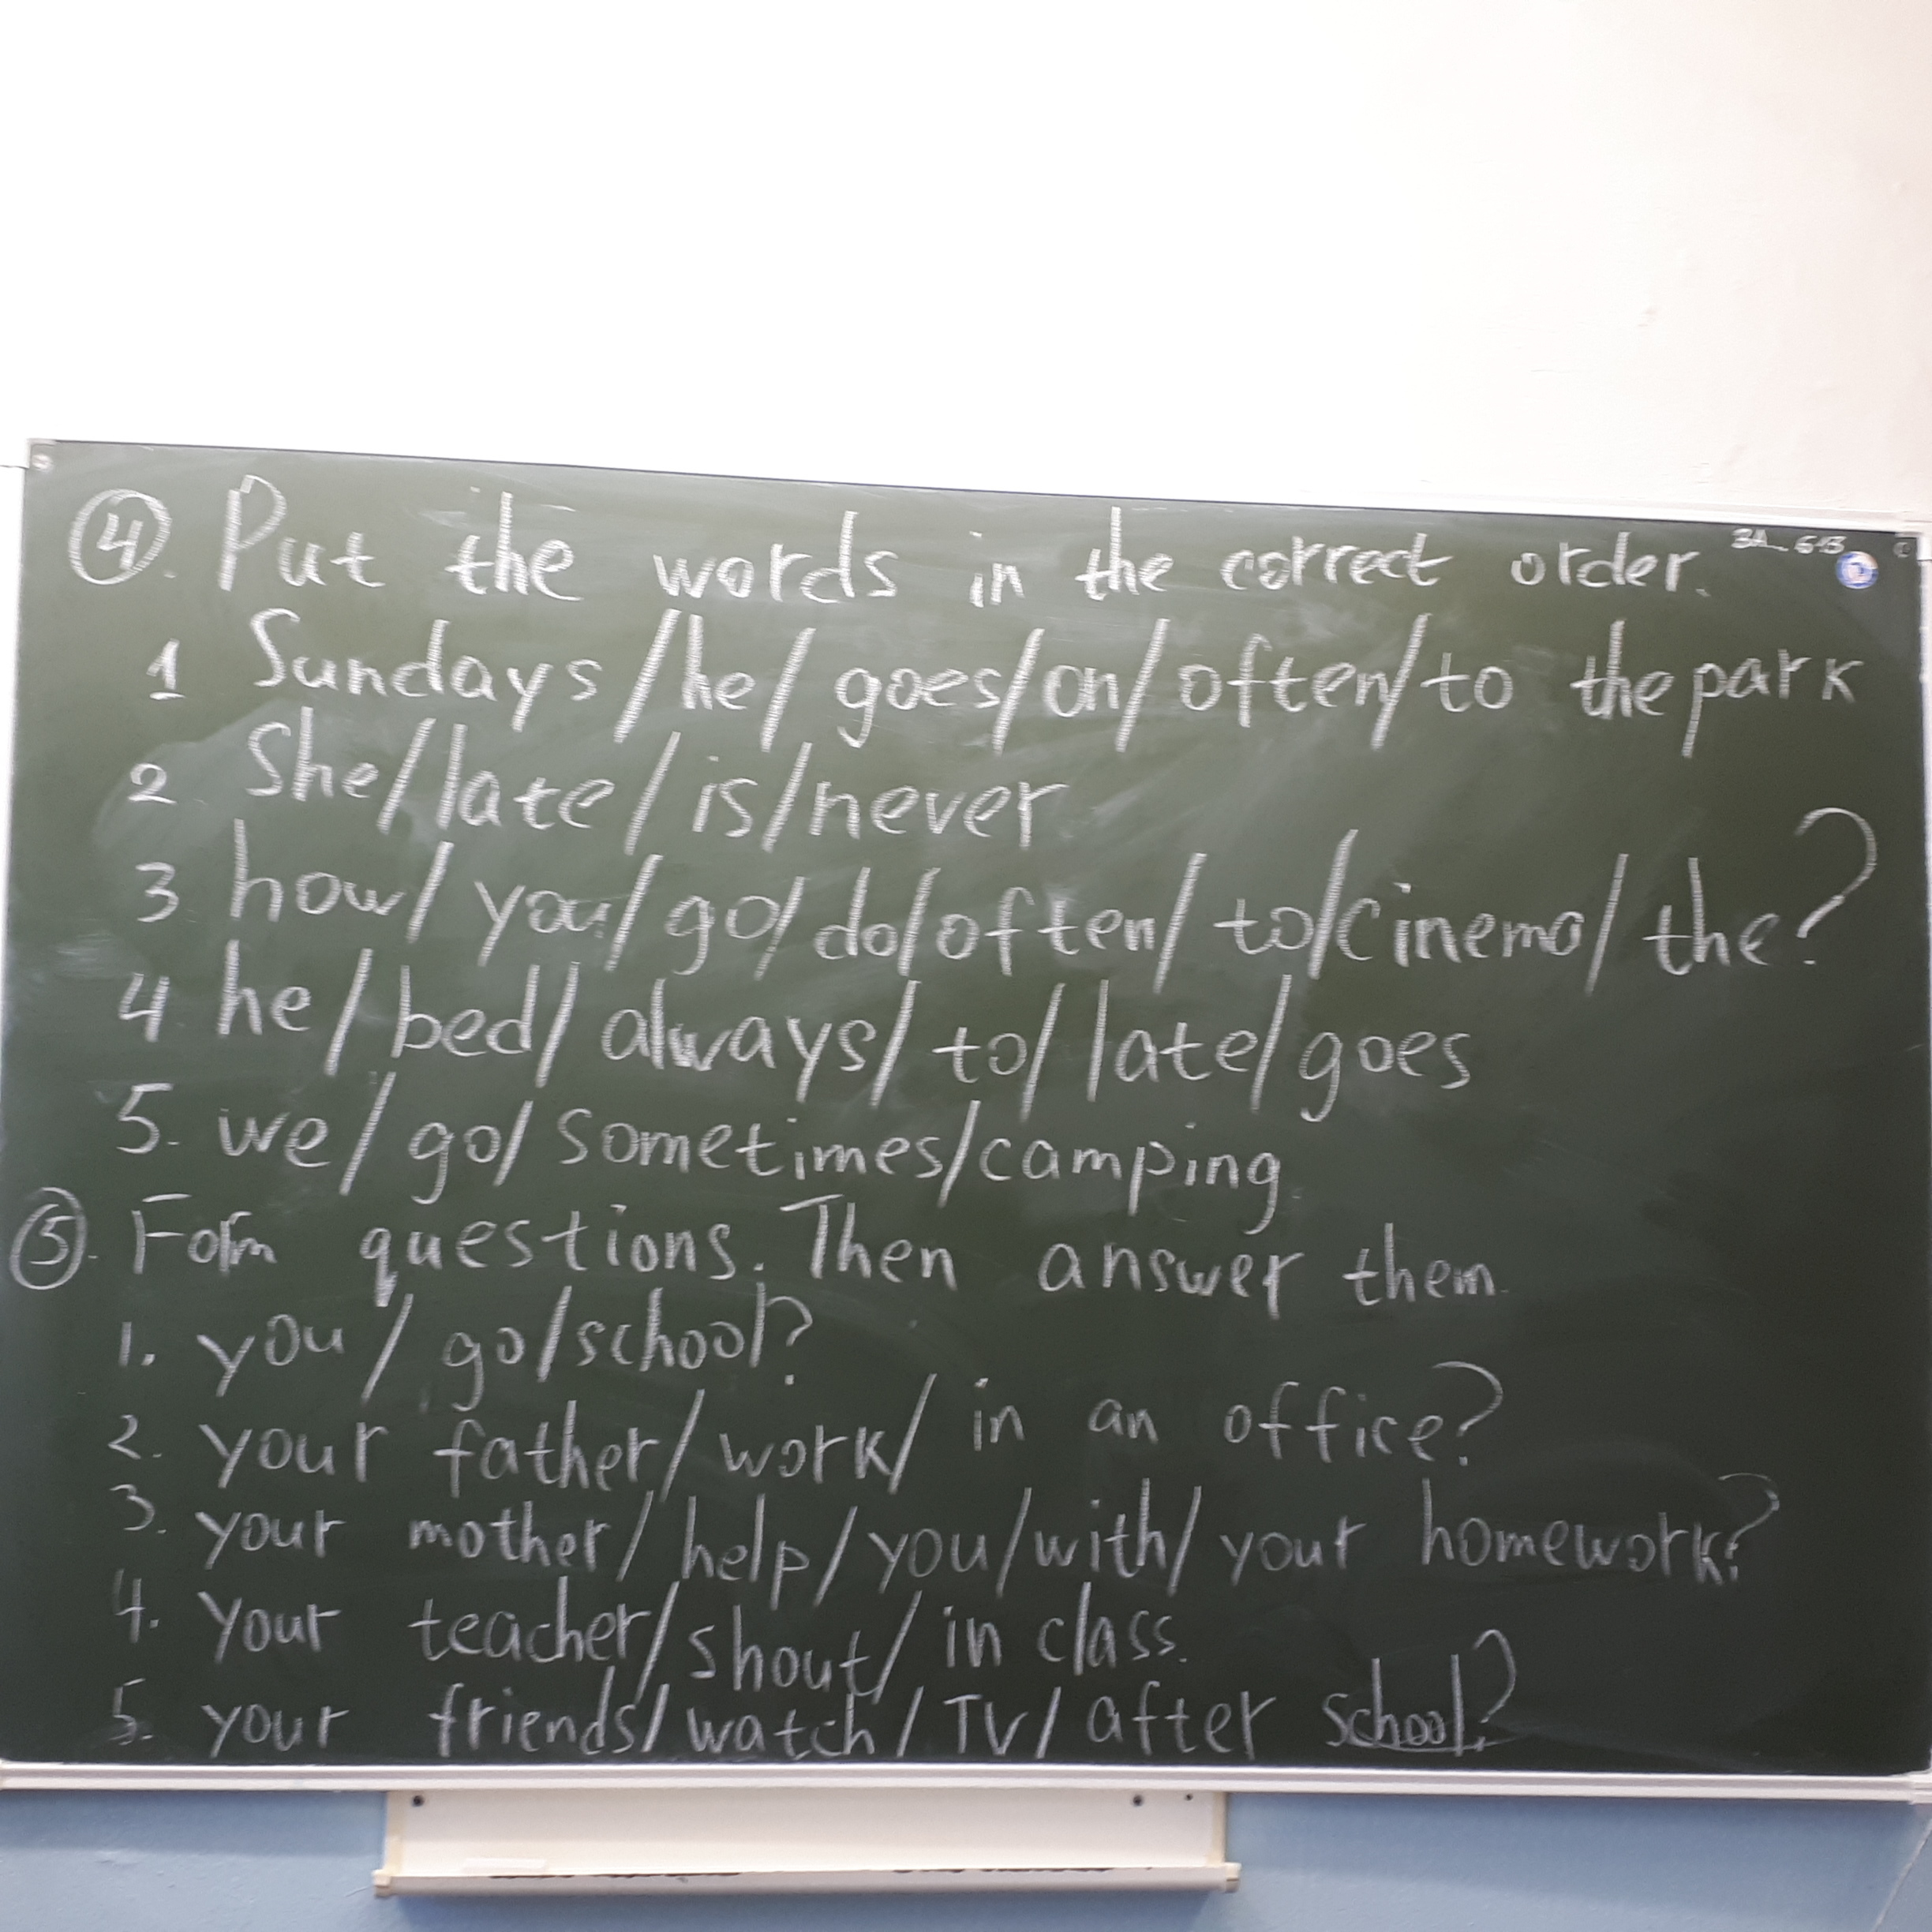 4. Put the words in the correct order.
1 Sundays / he / goes / on / often / to the park
2. She / late / is / never
3 how / you / go / do / often / to / cinema / the?
4 he / bed / always / to / late / goes
5. we / go / sometimes / camping.
5. Form questions. Then answer them.
1. you / go / school?
2. your father / work / in an office?
3. your mother / help / you / with / your homework?
4. Your teacher / shout / in class.
5. your friends / watch / TV / after school?